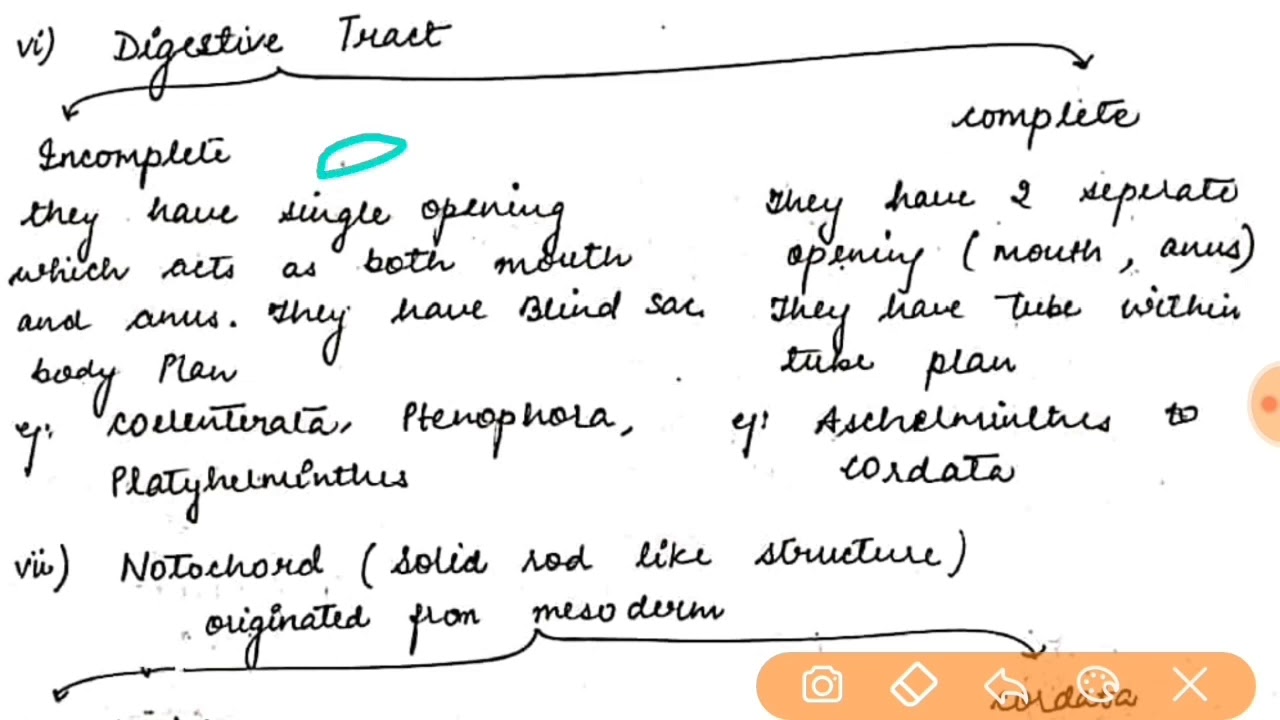 vi) Digestive Tract
Incomplete
they have single opening
which acts as both mouth
and anus. They have Blind Sac
body Plan
eg: coelenterata, Ptenophora,
Platyhelminthes
complete
They have 2 seperate
opening (mouth, anus)
They have Tube within
tube plan
eg: Aschelminthes to
cordata
vii) Notochord (solid rod like structure)
originated from mesoderm
cordata